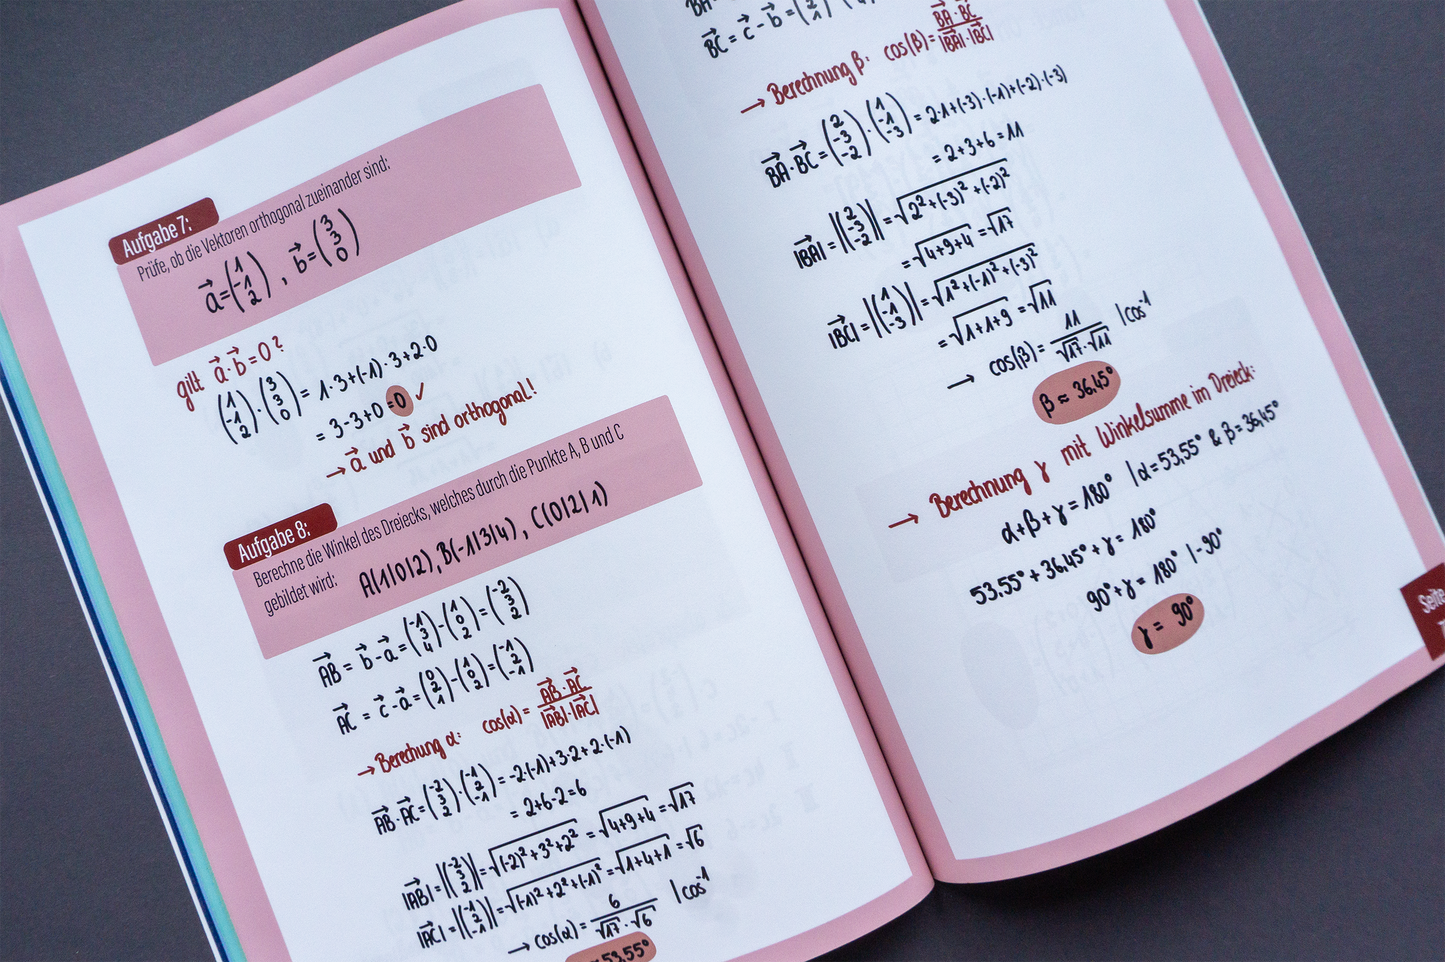 Aufgabe 7:
Prüfe, ob die Vektoren orthogonal zueinander sind:
a⃗=(1 -1 2), b⃗=(3 3 0)
gilt a⃗·b⃗=0?
(1 -1 2)·(3 3 0)= 1·3+(-1)·3+2·0
= 3-3+0=0 ✓
→ a⃗ und b⃗ sind orthogonal!
Aufgabe 8:
Berechne die Winkel des Dreiecks, welches durch die Punkte A, B und C
gebildet wird: A(1|0|2), B(-1|3|4), C(0|2|1)
AB⃗ = b⃗-a⃗=(-1 3 4)-(1 0 2)=(-2 3 2)
AC⃗ = c⃗-a⃗=(0 2 1)-(1 0 2)=(-1 2 -1)
→ Berechung α: cos(α)= AB⃗·AC⃗ / |AB⃗|·|AC⃗|
AB⃗·AC⃗=(-2 3 2)·(-1 2 -1)= -2·(-1)+3·2+2·(-1)
= 2+6-2=6
|AB⃗|=|(-2 3 2)|=√(-2)²+3²+2² =√4+9+4 =√17
|AC⃗|=|(-1 2 -1)|=√(-1)²+2²+(-1)² =√1+4+1 =√6
→ cos(α)= 6 / √17·√6 |cos⁻¹
53.55°
BC⃗ = c⃗-b⃗=
→ Berechnung β: cos(β)= BA⃗·BC⃗ / |BA⃗|·|BC⃗|
BA⃗·BC⃗=(2 -3 -2)·(1 -1 -3)= 2·1+(-3)·(-1)+(-2)·(-3)
= 2+3+6=11
|BA⃗|=|(2 -3 -2)|=√2²+(-3)²+(-2)²
=√4+9+4 =√17
|BC⃗|=|(1 -1 -3)|=√1²+(-1)²+(-3)²
=√1+1+9 =√11
→ cos(β)= 11 / √17·√11 |cos⁻¹
β ≈ 36,45°
→ Berechnung γ mit Winkelsumme im Dreieck:
α+β+γ=180° |α=53,55° & β=36,45°
53.55°+36,45°+γ=180°
90°+γ=180° |-90°
γ = 90°
Seite